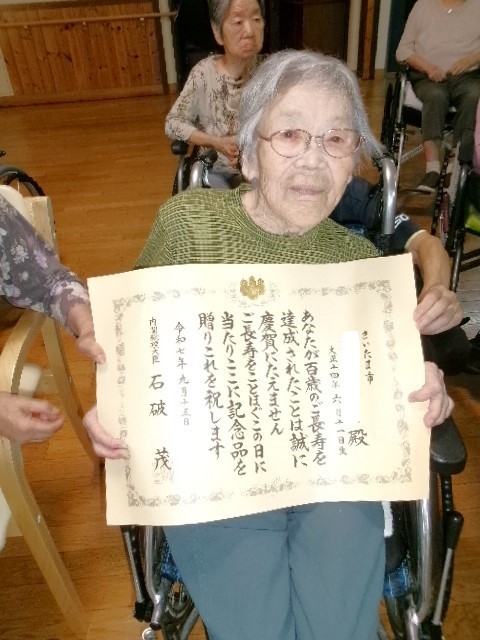 さいたま市
殿
大正十四年 六月十一日生
あなたが百歳のご長寿を
達成されたことは誠に
慶賀にたえません
ご長寿をことほぐこの日に
当たりここに記念品を
贈りこれを祝します
令和七年九月十五日
内閣総理大臣 石破 茂